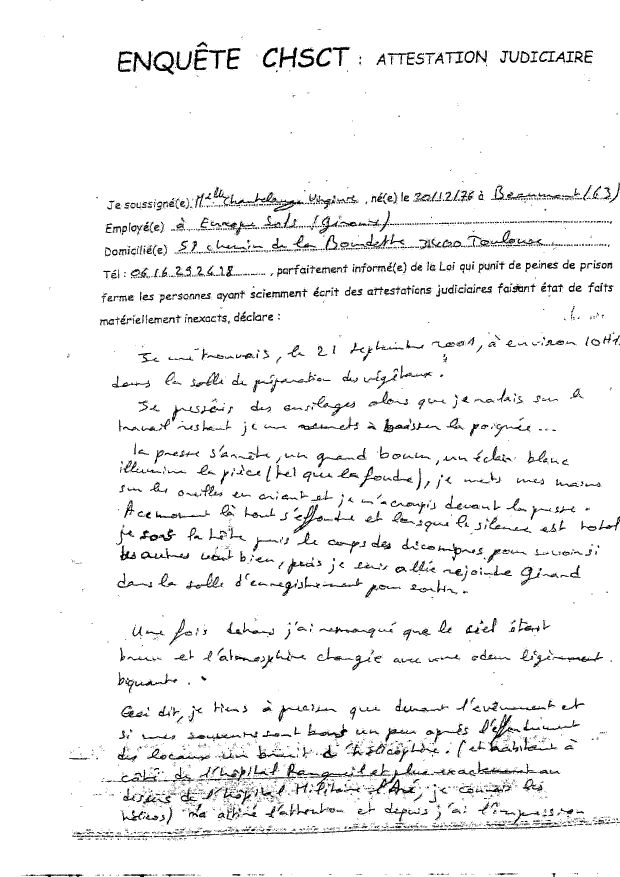 ENQUÊTE CHSCT : ATTESTATION JUDICIAIRE
Je soussigné(e) Melle Chantelauze Virginie, né(e) le 20/12/76 à Beaumont (63)
Employé(e) à Europe Sols (Gironis)
Domicilié(e) 58 chemin de la Toulouse
Tél : 06 16 29 26 18, parfaitement informé(e) de la Loi qui punit de peines de prison
ferme les personnes ayant sciemment écrit des attestations judiciaires faisant état de faits
matériellement inexacts, déclare :
Je me trouvais, le 21 Septembre 2001, à environ 10H1
dans la salle de préparation des végétaux.
Je pressais des ensilages alors que je allais sur le
travail restant je me remets à baisser la poignée...
La presse s'arrête, un grand boum, un éclair blanc
illumine la pièce (tel que la foudre), je mets mes mains
sur les oreilles en criant et je m'acroupis devant la presse.
A ce moment là tout s'effondre et lorsque le silence est total
je sors la tête puis le corps des décombres pour savoir si
les autres vont bien, puis je suis allée rejoindre Girard
dans la salle d'enregistrement pour sortir.
Une fois dehors j'ai remarqué que le ciel était
brun et l'atmosphère changée avec une odeur légèrement
piquante.
Ceci dit, je tiens à préciser que durant l'évènement et
si mes souvenirs sont bons un peu après l'effondrement
des locaux un bruit d'hélicoptère. (et habitant à
côté de l'hôpital Rangueil et plus exactement au
dessus de l'hôpital Militaire l'Aré, je connais les
hélicos) m'a attiré l'attention et depuis j'ai l'impression